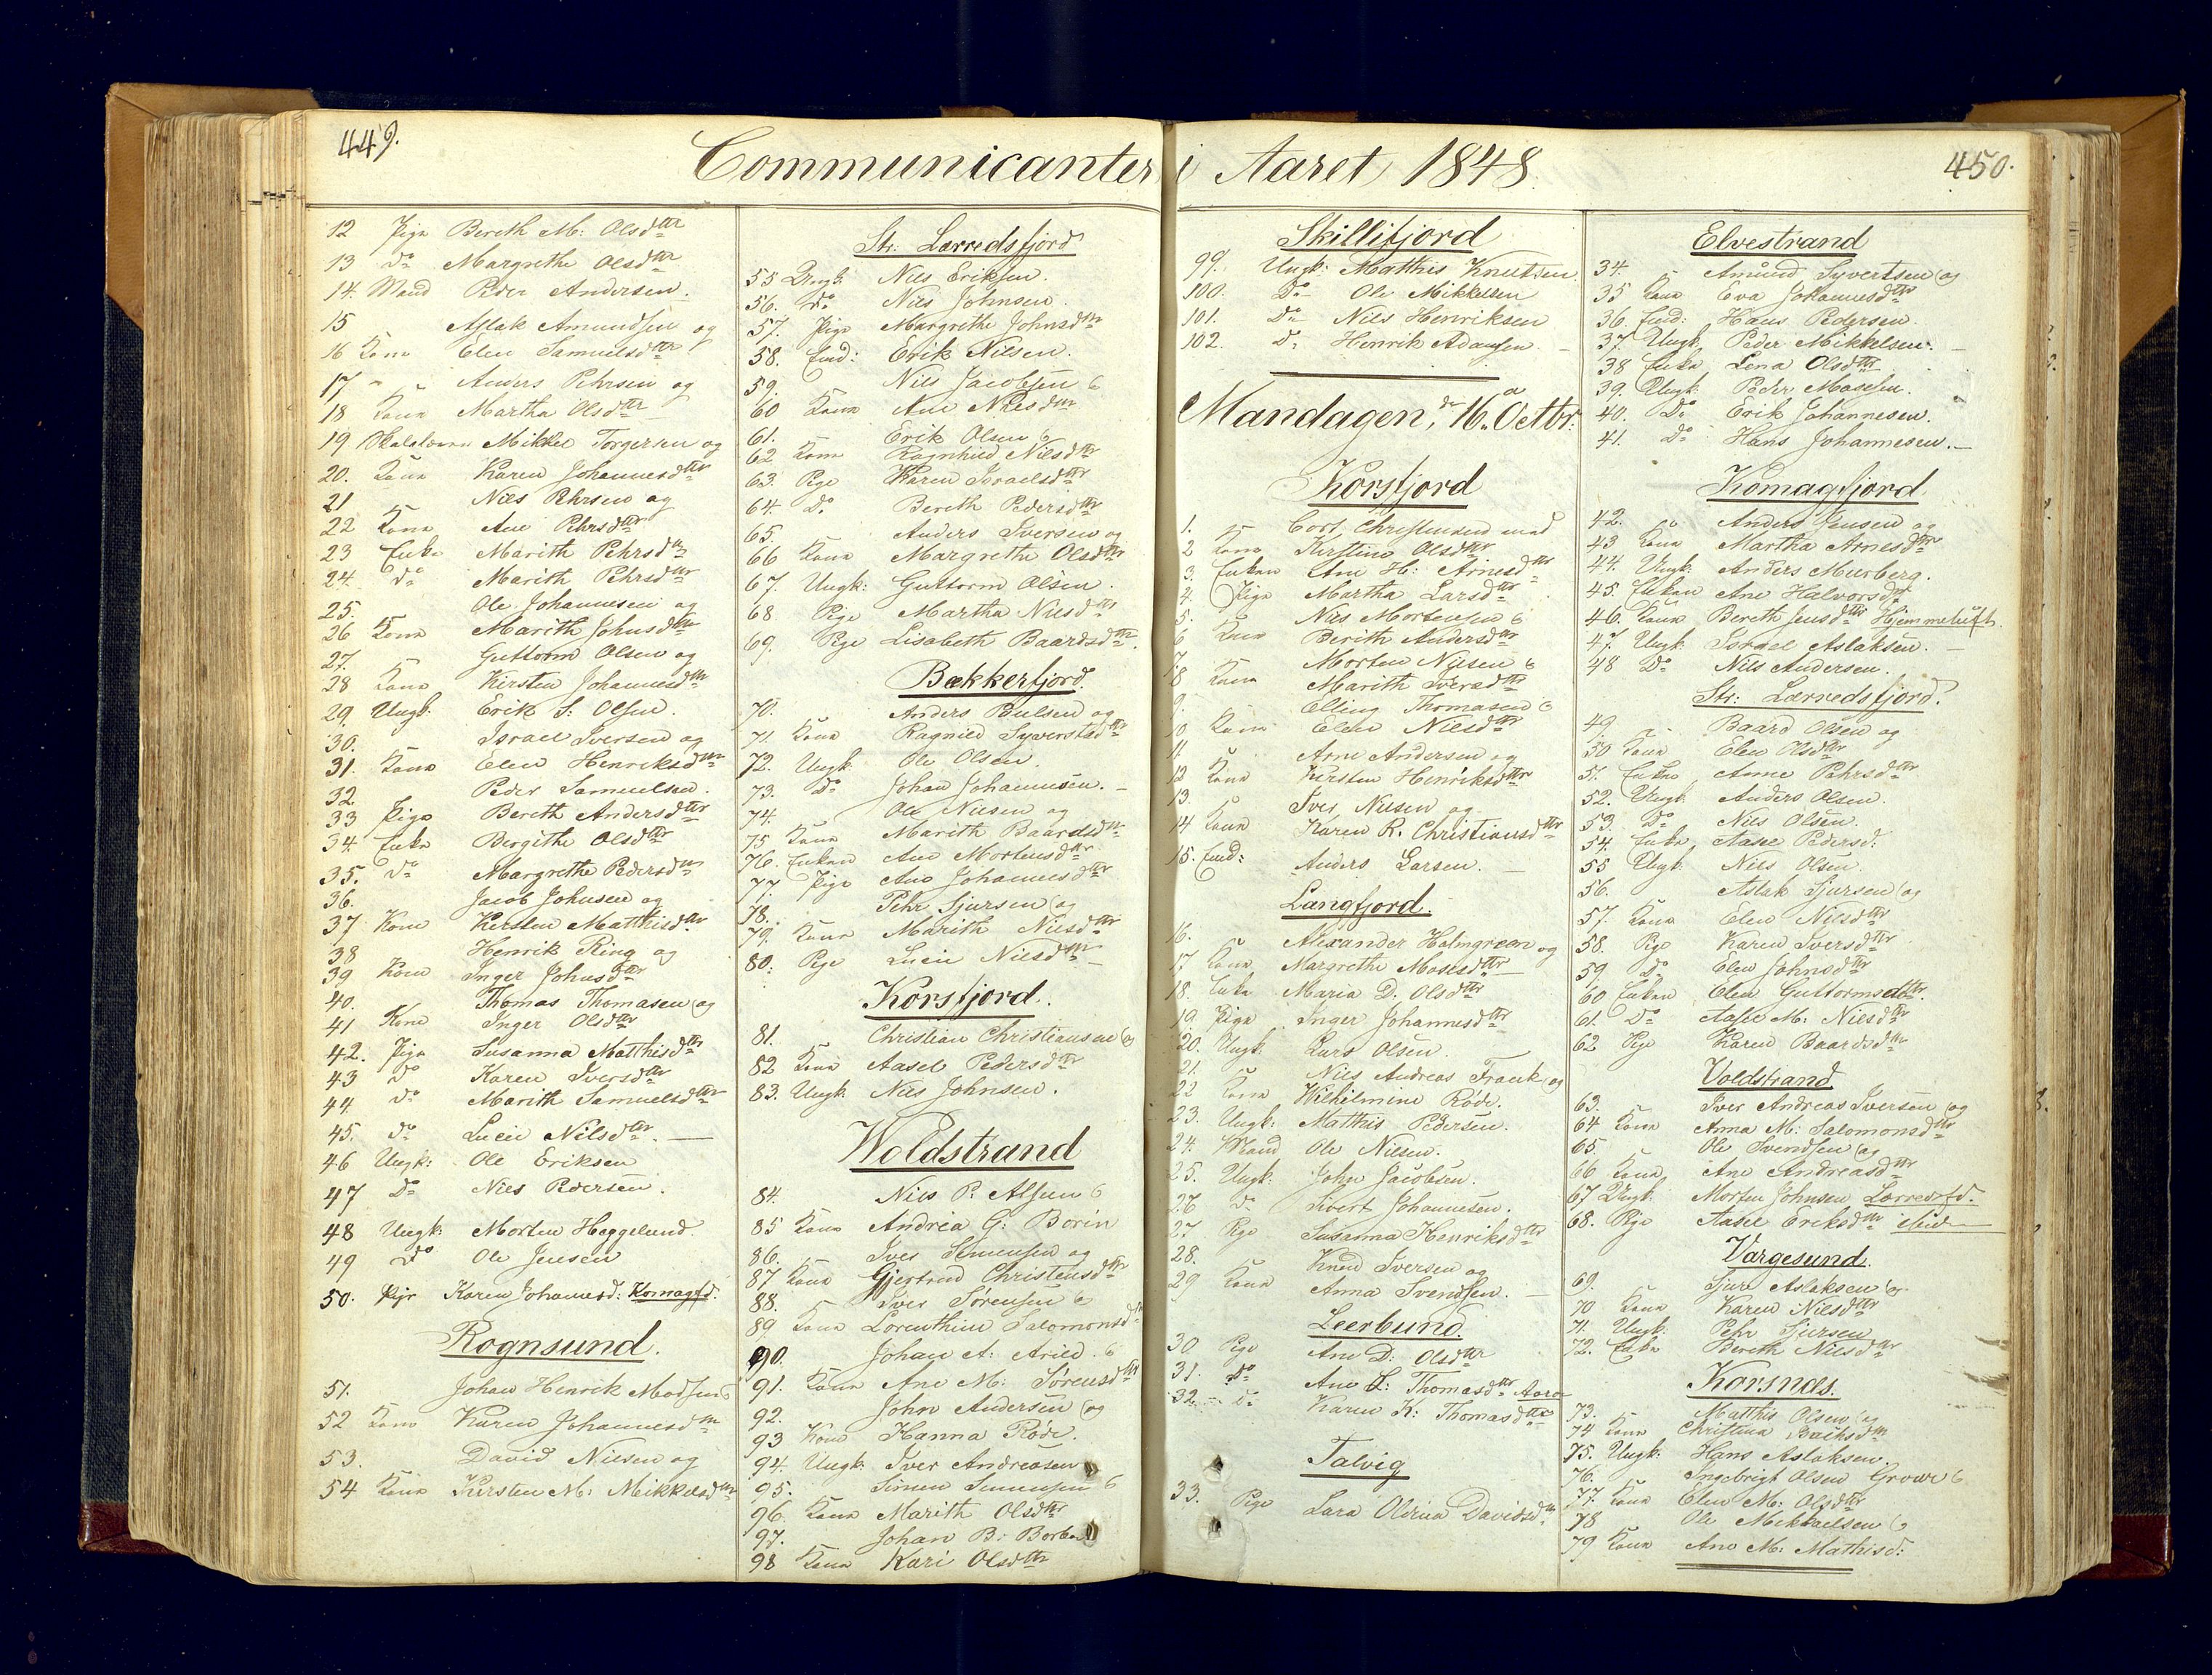 449.
Communicanter i Aaret 1848.
450.
12 Pige Bereth M: Olsdttr
13 Do Margrethe Olsdttr
14. Mand Peder Andersen.
15 Aslak Amundsen og
16 Kone Elen Samuelsdttr
17 Anders Pehrsen og
18 Kone Martha Olsdttr
19 Mikkel Torgersen og
20. Kone Karen Johannesdttr
21 Nils Pehrsen og
22 Kone Ane Pehrsdttr
23 Enke Marith Pehrsdttr
24. Do Marith Pehrsdttr
25. Ole Johannesen og
26 Kone Marith Johnsdttr
27. Guttorm Olsen og
28 Kone Kirsten Johannesdttr
29. Ungk: Erik S: Olsen.
30. Israel Iversen og
31. Kone Elen Henriksdttr
32 Peder Samuelsen.
33 Pige Bereth Andersdttr
34 Enke Birgithe Olsdttr
35. Do Margrethe Pedersdttr
36. Jacob Johnsen og
37 Kone Kirsten Matthisdttr
38 Henrik Ring og
39 Kone Inger Johnsdttr
40. Thomas Thomasen og
41 Kone Inger Olsdttr
42. Pige Susanna Matthisdttr
43 Do Karen Iversdttr
44 Do Marith Samuelsdttr
45. Do Lucie Nilsdttr.
46 Ungk: Ole Eriksen
47 Do Niels Pedersen.
48 Ungk: Morten Heggelund.
49 Do Ole Jensen
50. Pige Karen Johannesd: Komagfd.
Rognsund.
51. Johan Henrik Madsen
52 Kone Karen Johannesdttr
53. David Nilsen og
54 Kone Kirsten M: Mikkelsdttr
Str: Lærredsfjord
55 Ungk: Nils Eriksen.
56. Do Nils Johnsen.
57. Pige Margrethe Johnsdttr
58. Enk: Erik Nilsen.
59. Nils Jacobsen
60 Kone Ane Nilsdttr
61. Erik Olsen
62 Kone Ragnhild Nilsdttr
63. Pige Karen Israelsdttr
64. Do Bereth Pedersdttr
65. Anders Iversen og
66 Kone Margrethe Olsdttr
67. Ungk: Guttorm Olsen.
68 Pige Martha Nilsdttr
69. Pige Lisabeth Baardsdttr.
Bækkerfjord.
70. Anders Poulsen og
71. Kone Ragnild Syverstdttr
72. Ungk. Ole Olsen.
73. Do Johan Johannesen.
74. Ole Nilsen og
75 Kone Marith Baardsdttr
76. Enken Ane Mortensdttr
77. Pige Ane Johannesdttr
78. Pehr Sjursen og
79. Kone Marith Nilsdttr
80. Pige Lucie Nilsdttr
Korsfjord.
81. Christian Christiansen og
82 Kone Aasel Pedersdttr
83. Ungk: Nils Johnsen.
Woldstrand
84. Nils P: Alsen
85 Kone Andrea G: Borin
86. Iver Simensen og
87. Kone Gjertrud Christensdttr
88. Iver Sørensen
89 Kone Lorenthine Salomonsdttr
90. Johan A: Arild.
91. Kone Ane M: Sørensdttr
92. John Andersen og
93 Kone Hanna Röde.
94. Ungk: Iver Andreasen
95. Simen Simensen
96. Kone Marith Olsdttr
97. Johan B:
98 Kone Kari Olsdttr
Skillifjord
99. Ungk: Matthis Knutsen
100. Do Ole Mikkelsen
101. Do Nils Henriksen
102. Do Henrik Adamsen.
Mandagen, d. 16. Octbr:
Korsfjord
1. Cort Christensen med
2 Kone Kirstine Olsdttr
3. Enken Ane H: Arnesdttr
4. Pige Martha Larsdttr
5. Nils Mortensen
6 Kone Berith Andersdttr
7. Morten Nilsen
8 Kone Marith Iversdttr
9. Elling Thomasen
10 Kone Elen Nilsdttr
11. Arne Andersen og
12 Kone Kirsten Henriksdttr
13. Iver Nilsen og
14 Kone Karen R. Christiansdttr
15. Enk: Anders Larsen.
Langfjord.
16. Alexander Holmgreen og
17 Kone Margrethe Mosesdttr
18. Enke Maria D. Olsdttr
19. Pige Inger Johannesdttr
20. Ungk: Lars Olsen.
21. Nils Andreas Frank og
22 Kone Wilhelmine Röde.
23. Ungk: Matthis Pedersen.
24. Mand Ole Nilsen.
25. Ungk: John Jacobsen.
26 Do Sivert Johannesen.
27 Pige Susanna Henriksdttr
28. Knud Iversen og
29 Kone Anna Svendsen.
Leerbund.
30 Pige Ane D: Olsdttr
31. Do Ane L: Thomasdttr Aarø
32. Do Karen K: Thomasdttr
Talvig
33. Pige Lara Oldina Davidsdttr
Elvestrand
34. Amund Syvertsen og
35 Kone Eva Johannesdttr
36. Enk: Hans Pedersen.
37. Ungk. Peder Mikkelsen.
38 Enke Lena Olsdttr
39. Ungk: Peder Mosesen.
40. Do Erik Johannesen.
41. Do Hans Johannesen.
Komagfjord.
42. Anders Jensen og
43 Kone Martha Arnesdttr
44. Ungk: Anders Murberg.
45. Enken Ane Halvorsdttr
46. Kone Bereth Jensdttr Hjemmeluft.
47. Ungk: Israel Aslaksen.
48 Do Nils Andersen.
Str: Lærredsfjord.
49 Baard Olsen og
50 Kone Elen Olsdttr
51. Enke Anne Pehrsdttr
52. Ungk Anders Olsen.
53. Do Nils Olsen.
54. Enke, Aasel Pedersd.
55 Ungk: Nils Olsen.
56. Aslak Sjursen og
57. Kone Elen Nilsdttr
58. Pige Karen Iversdttr
59. Do Elen Johnsdttr
60 Enken Elen Guttormsdttr.
61. Do Aasel M: Nilsdttr
62 Pige Karen Baardsdttr
Voldstrand
63. Iver Andreas Iversen og
64 Kone Anna M: Salomonsdttr
65. Ole Svendsen og
66 Kone Ane Andreasdttr
67 Ungk: Morten Johnsen Lærredsfd.
68. Pige Aasel Eriksdttr ibid
Vargesund.
69. Sjur Aslaksen og
70 Kone Karen Nilsdttr
71. Ungk: Pehr Sjursen
72. Enke Bereth Nilsdttr
Korsnæs.
73. Matthis Olsen og
74 Kone Christina
75. Ungk: Hans Aslaksen.
76. Ingebrigt Olsen Growe
77. Kone Elen M: Olsdttr
78 Ole Mikkelsen
79 Kone Ane M: Mathisd: